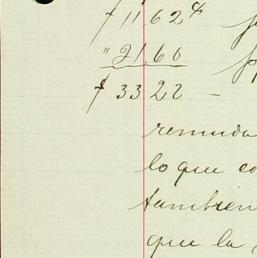 $ 11.62 4
" 21.60
$ 33.22 -
remida
lo que co
tambien
que la